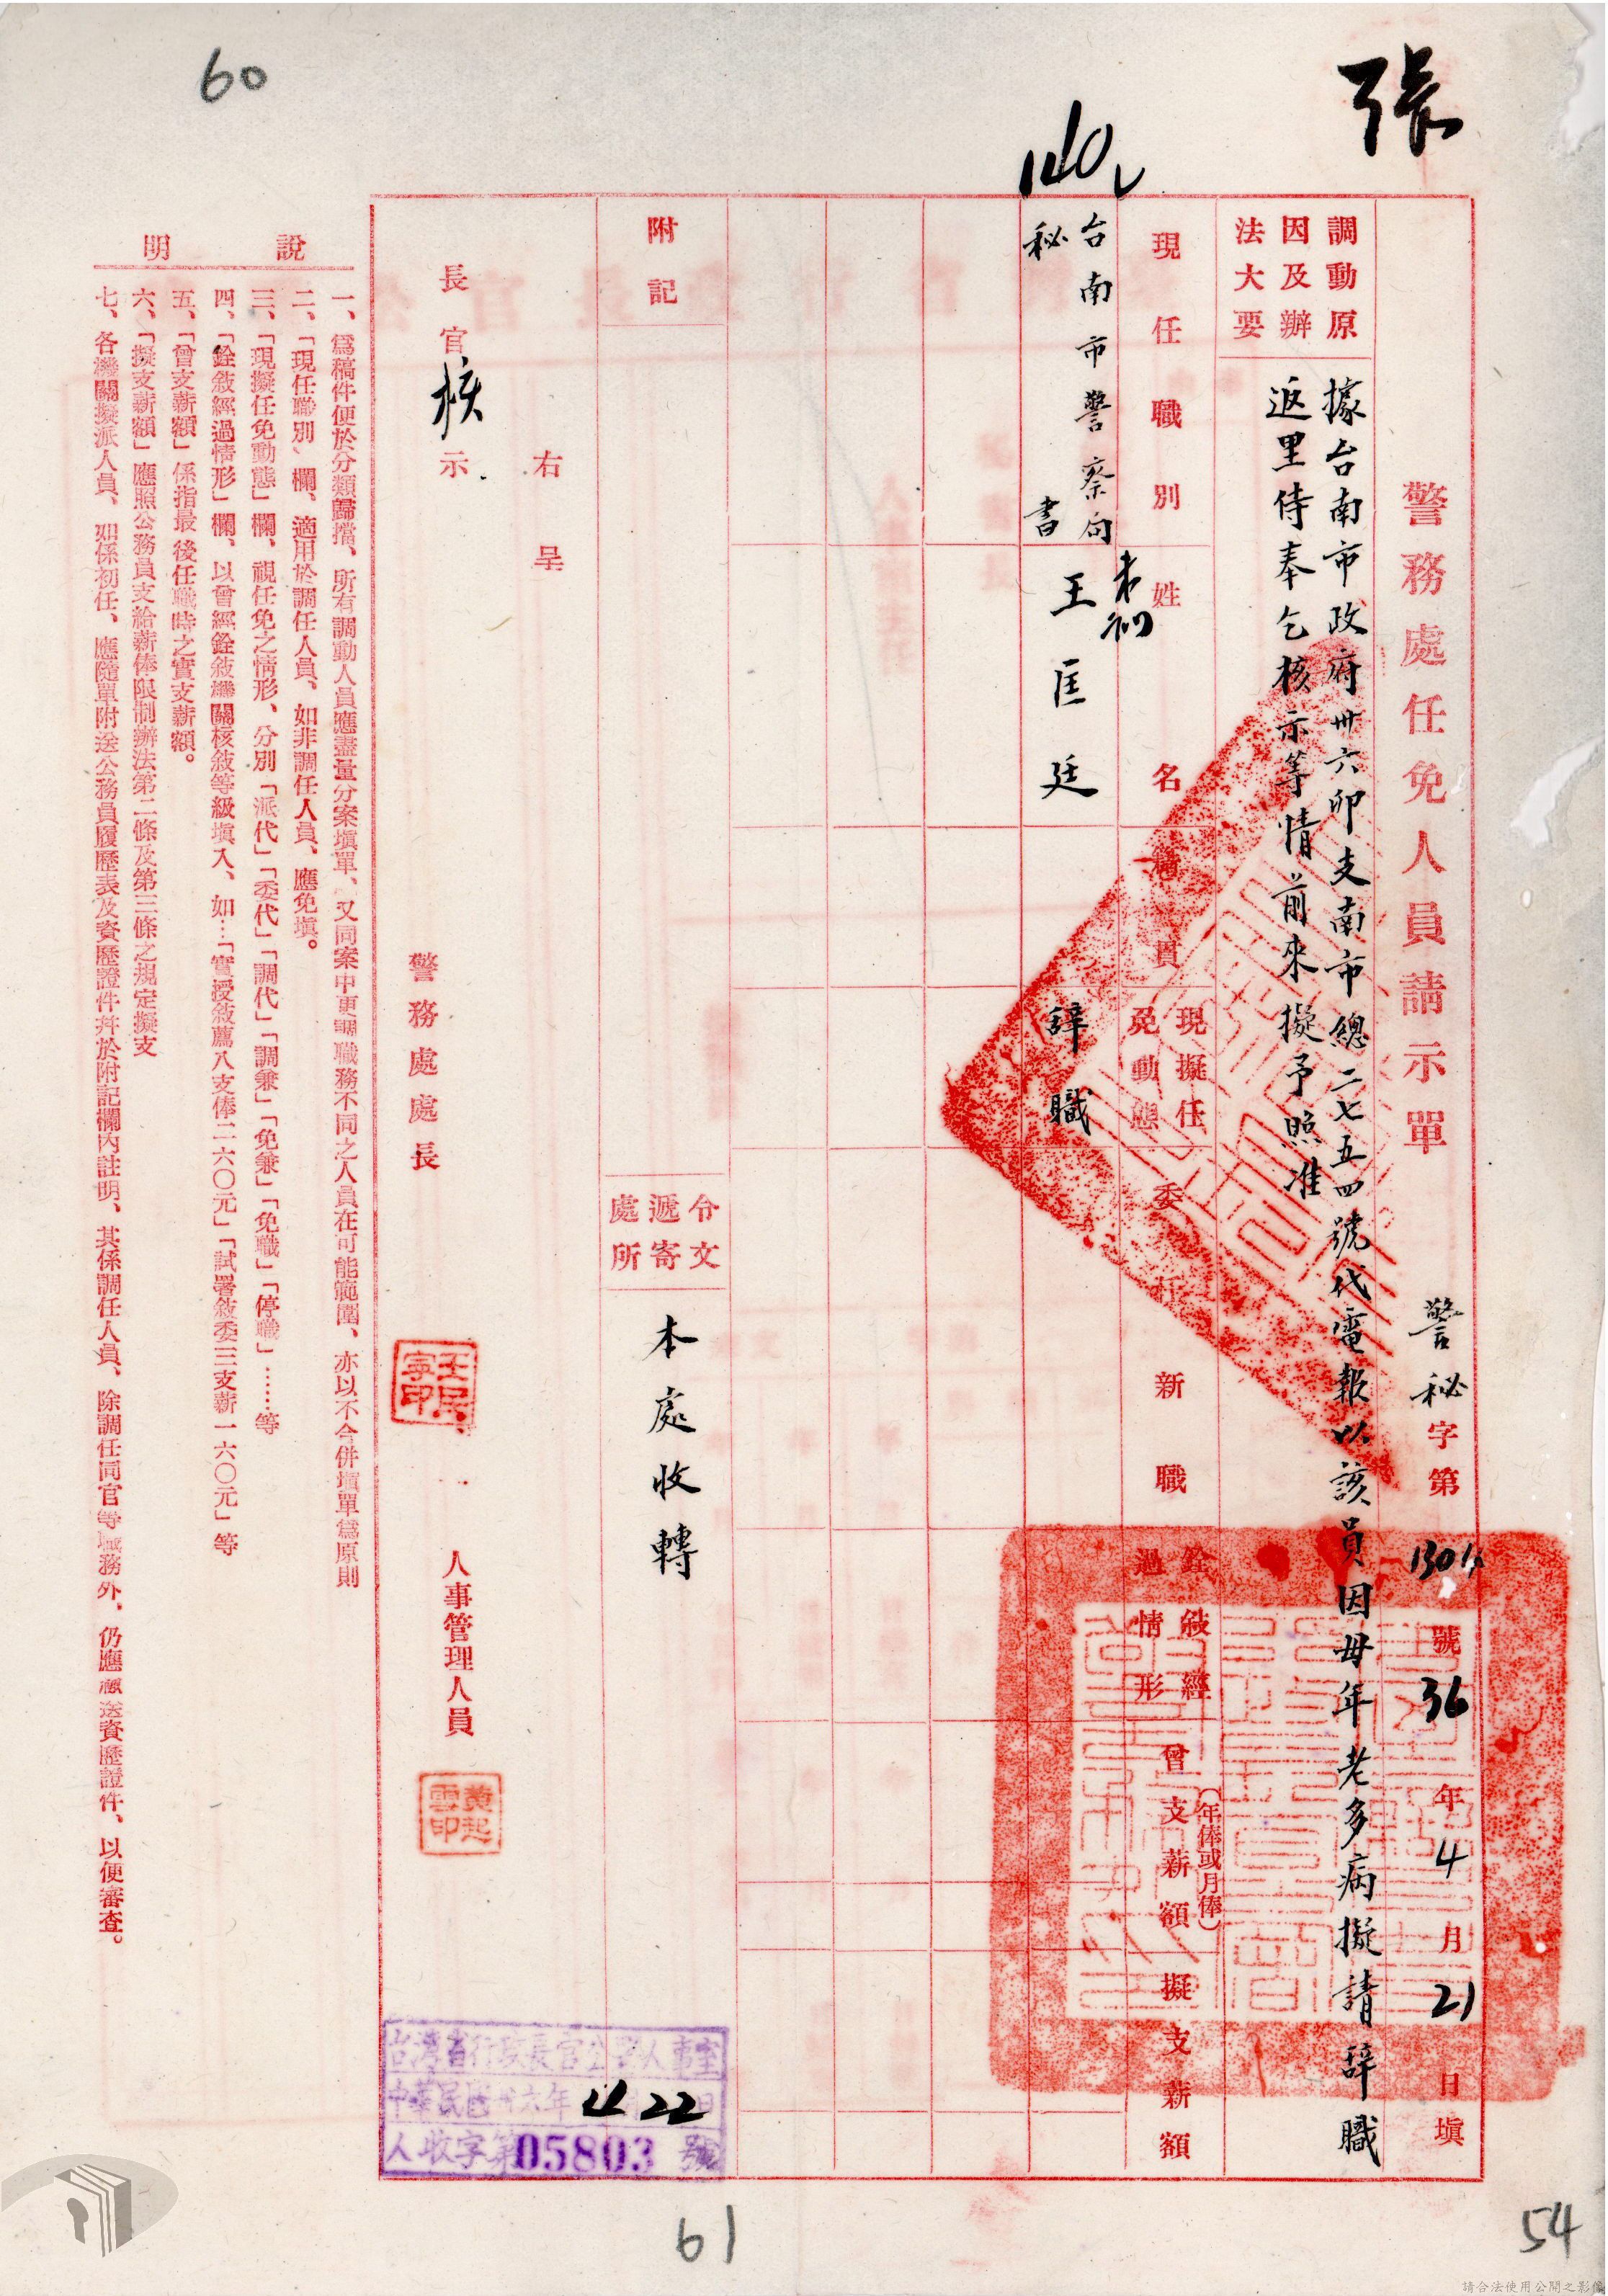 張
60
140
警務處任免人員請示單
警秘字第1304號36年4月21日填
調動原因及辦法大要
據台南市政府卅六卯支南市總二七五四號代電報以該員因母年老多病擬請辭職
返里侍奉乞核示等情前來擬予照准
現任職別
姓名
籍貫
現擬任免動態
委任新職
銓敍經過情形
曾支薪額
(年俸或月俸)
擬支薪額
台南市警察局
秘書
王匡廷
辭職
附記
令文遞寄處所
本處收轉
右呈
長官核示
警務處處長
王民寧印
人事管理人員
黃起雲印
台灣省行政長官公署人事室
中華民國卅六年4月22日
人收字第05803號
說明
一、爲稿件便於分類歸檔、所有調動人員應盡量分案塡單、又同案中更調職務不同之人員在可能範圍、亦以不合併塡單爲原則
二、「現任職別」欄、適用於調任人員、如非調任人員、應免塡。
三、「現擬任免動態」欄、視任免之情形、分別「派代」「委代」「調代」「調兼」「免兼」「免職」「停職」……等
四、「銓敍經過情形」欄、以曾經銓敍機關核敍等級塡入、如…「實授敍薦八支俸二六〇元」「試署敍委三支薪一六〇元」等
五、「曾支薪額」係指最後任職時之實支薪額。
六、「擬支薪額」應照公務員支給薪俸限制辦法第二條及第三條之規定擬支
七、各機關擬派人員、如係初任、應隨單附送公務員履歷表及資歷證件幷於附記欄內註明、其係調任人員、除調任同官等職務外、仍應送資歷證件、以便審查。
61
54
請合法使用公開之影像